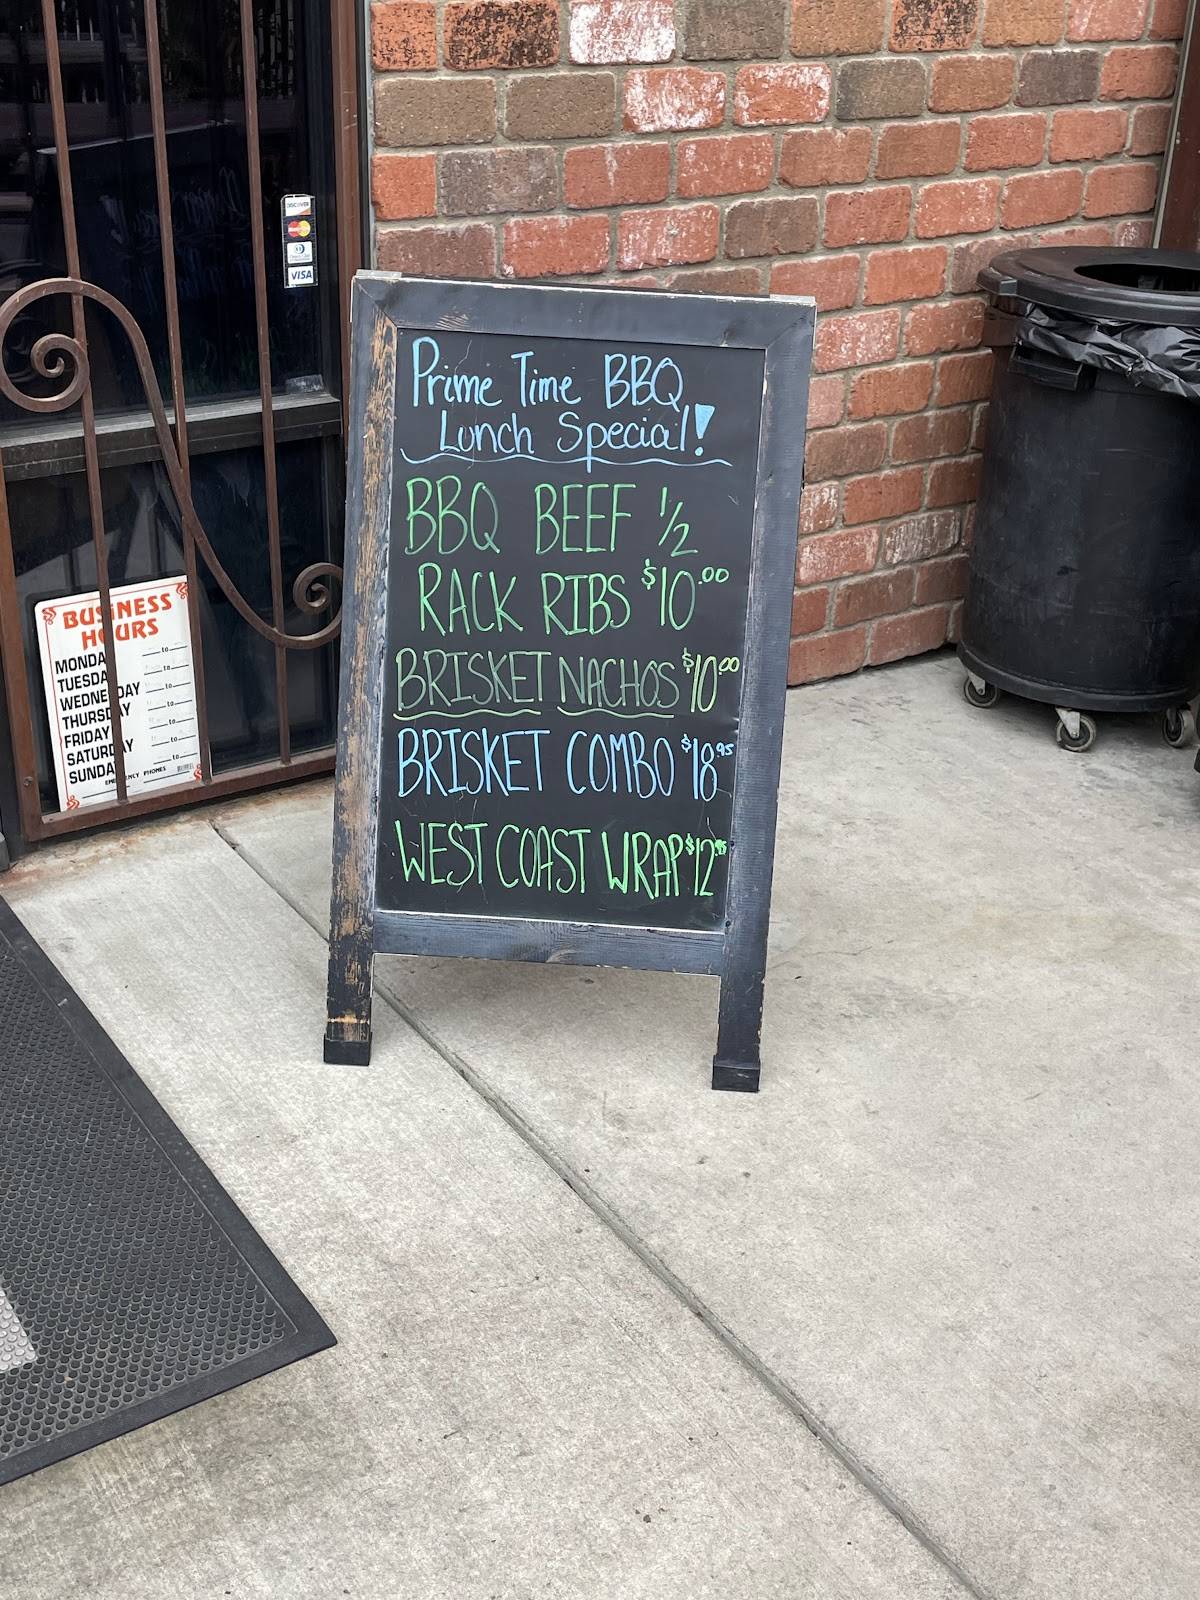 DISCOVER
VISA
Prime Time BBQ
Lunch Special!
BBQ BEEF 1/2
RACK RIBS $10.00
BRISKET NACHOS $10.00
BRISKET COMBO $18.95
WEST COAST WRAP $12.95
BUSINESS
HOURS
MONDAY to
TUESDAY to
WEDNESDAY to
THURSDAY to
FRIDAY to
SATURDAY to
SUNDAY to
EMERGENCY PHONES